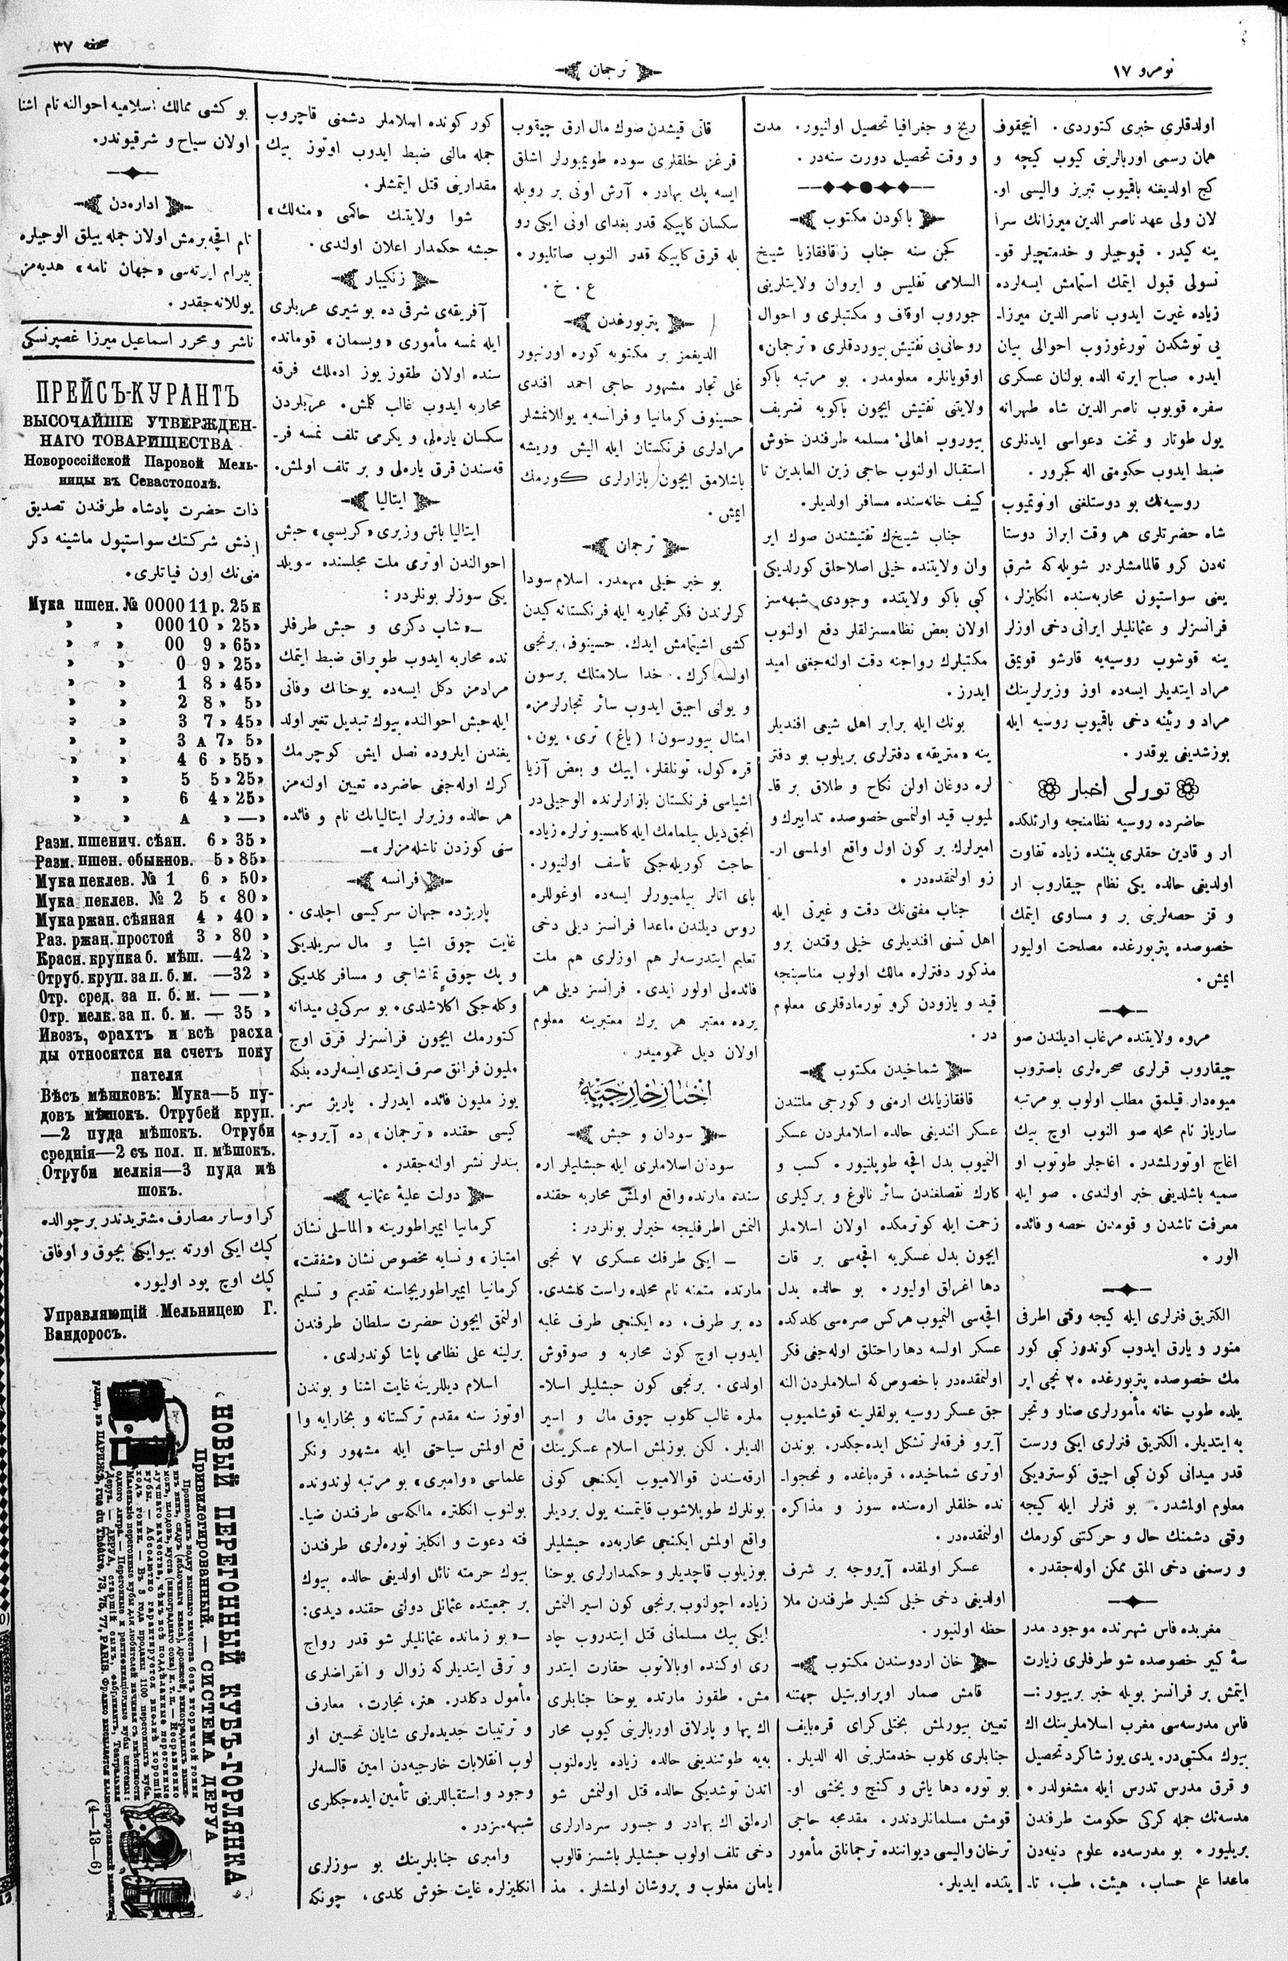 نومرو ١٧
ترجمان
صحفه ٣٧
اولدقلری خبری کتوردی. انیچقوف
همان رسمی اوربالرینی کیوب کیچه و
کج اولدیغنه باقمیوب تبریز والیسی او-
لان ولی عهد ناصر الدین میرزانك سرا
ینه کیدر. قپوجیلر و خدمتچیلر قو-
نسولی قبول ایتمك استمامش ایسه‌لرده
زیاده غیرت ایدوب ناصر الدین میرزا-
یی توشکدن تورغوزوب احوالی بیان
ایدر. صباح ایرته الده بولنان عسکری
سفره قویوب ناصر الدین شاه طهرانه
یول طوتار و تخت دعواسی ایدنلری
ضبط ایدوب حکومتی اله کچرور.
روسیه‌نك بو دوستلغنی اونوتمیوب
شاه حضرتلری هر وقت ابراز دوستا
نه‌دن کرو قالمامشلردر شویله که شرق
یعنی سواستپول محاربه‌سنده انکلیزلر،
فرانسزلر و عثمانلیلر ایرانی دخی اوزلر
ینه قوشوب روسیه‌یه قارشو قویمق
مراد ایتدیلر ایسه‌ده اوز وزیرلرینك
مراد و رئینه دخی باقمیوب روسیه ایله
بوزشدیغی یوقدر.
تورلی اخبار
حاضرده روسیه نظامنجه وارثلکده
ار و قادین حقلری بیننده زیاده تفاوت
اولدیغی حالده یکی نظام چیقاروب ار
و قز حصه‌لرینی بر و مساوی ایتمك
خصوصده پتربورغده مصلحت اولیور
ایمش.
مروه ولایتنده مرغاب ادیلندن صو
چیقاروب قرلری صحره‌لری باصدروب
میوه‌دار قیلمق مطلب اولوب بو مرتبه
ساریاز نام محله صو النوب اوچ بیك
اغاج اوتورلمشدر. اغاجلر طوتوب او
سمیه باشلدیغی خبر اولندی. صو ایله
معرفت تاشدن و قومدن حصه و فائده
الور.
الکتریق فنرلری ایله کیجه وقتی اطرفی
منور و یارق ایدوب کوندوز کبی کور
مك خصوصده پتربورغده ٢٠ نجی اپر
یلده طوپ خانه مأمورلری صناو و تجر
به ایتدیلر. الکتریق فنرلری ایکی ورست
قدر میدانی کون کبی اچیق کوستردیکی
معلوم اولمشدر. بو فنرلر ایله کیجه
وقتی دشمنك حال و حرکتنی کورمك
و رسمنی دخی المق ممکن اوله‌جقدر.
مغربده فاس شهرنده موجود مدر
سهٔ کبیر خصوصده شو طرفلری زیارت
ایتمش بر فرانسز بویله خبر بریبور:-
فاس مدرسه‌سی مغرب اسلاملرینك اك
بیوك مکتبی‌در. یدی یوز شاکرد تحصیل
و قرق مدرس تدرس ایله مشغولدر.
مدسه‌نك جمله کرکی حکومت طرفندن
بریلیور. بو مدرسه‌ده علوم دنیه‌دن
ماعدا علم حساب، هیئت، طب، تا-
ریخ و جغرافیا تحصیل اولنیور. مدت
و وقت تحصیل دورت سنه‌در.
باکودن مکتوب
کچن سنه جناب زاقافقازیا شیخ
السلامی تفلیس و ایروان ولایتلرینی
جوروب اوقاف و مکتبلری و احوال
روحانی‌یی تفتیش بیوردقلری «ترجمان»
اوقویانلره معلومدر. بو مرتبه باکو
ولایتنی تفتیش ایچون باکویه تشریف
بیوروب اهالئ مسلمه طرفندن خوش
استقبال اولنوب حاجی زین العابدین تا
کییف خانه‌سنده مسافر اولدیلر.
جناب شیخ‌ك تفتیشندن صوك ایر
وان ولایتنده خیلی اصلاحلق کورلدیکی
کبی باکو ولایتنده وجودی شبهه‌سز
اولان بعض نظامسزلقلر دفع اولنوب
مکتبلرك رواجنه دقت اولنه‌جغنی امید
ایدرز.
بونك ایله برابر اهل شیعی افندیلر
ینه «متریقه» دفترلری بریلوب بو دفتر
لره دوغان اولن نکاح و طلاق بر قا-
لمیوب قید اولنمسی خصوصده تدابیرك و
امیرلرك بر کون اول واقع اولمسی ار-
زو اولنمقده‌در.
جناب مفتی‌نك دقت و غیرتی ایله
اهل تسنی افندیلری خیلی وقتدن برو
مذکور دفترلره مالك اولوب مناسبنجه
قید و یازودن کرو تورمادقلری معلوم
در.
شماخیدن مکتوب
قافقازیانك ارمنی و کورجی ملتندن
عسکر الندیغی حالده اسلاملردن عسکر
النمیوب بدل اقچه طوپلنیور. کسب و
کارك نقصلغندن سائر نالوغ و برکیلری
زحمت ایله کوترمکده اولان اسلاملر
ایچون بدل عسکریه اقچه‌سی بر قات
دها اغرلق اولیور. بو حالده بدل
اقچه‌سی النمیوب هرکس صره‌سی کلدکده
عسکر اولسه دها راحتلق اوله‌جغی فکر
اولنمقده‌در باخصوص که اسلاملردن النه
جق عسکر روسیه بولقلرینه قوشلمیوب
آیرو فرقه‌لر تشکل ایده‌جکدر. بوندن
اوتری شماخیده، قره‌باغده و نخجوا-
نده خلقلر اره‌سنده سوز و مذاکره
اولنمقده‌در.
عسکر اولمقده آیروجه بر شرف
اولدیغی دخی خیلی کشیلر طرفندن ملا
حظه اولنیور.
خان اردوسندن مکتوب
قامش صمار اوپراویتیل جهتنه
تعیین بیورلمش بختلی کرای قره‌بایف
جنابلری کلوب خدمتلرینی اله الدیلر.
بو توره دها یاش و کنچ و یخشی او-
قومش مسلمانلردندر. مقدمجه حاجی
ترخان والیسی دیواننده ترجمانلق مأمور
یتنده ایدیلر.
قاتی قیشدن صوك مال ارق چیقوب
قرغز خلقلری سوده طویمیورلر اشلق
ایسه پك بهادر. آرش اونی بر روبله
سکسان کاپیکه قدر بغدای اونی ایکی رو
بله قرق کاپیکه قدر النوب صاتلیور.
ع. خ.
پتربورغدن
الدیغمز بر مکتوبه کوره اورنبور
غلی تجار مشهور حاجی احمد افندی
حسینوف کرمانیا و فرانسه‌یه یوللانمشلر
مرادلری فرنکستان ایله الیش ویریشه
باشلامق ایچون بازارلری کورمك
ایمش.
ترجمان
بو خبر خیلی مهمدر. اسلام سودا
کرلرندن فکر تجاریه ایله فرنکستانه کیدن
کشی اشیتمامش ایدك. حسینوف برنجی
اولسه کرك. خدا سلامتلك برسون
و یولنی اچیق ایدوب سائر تجارلرمزه
امثال بیورسون! (یاغ) تری، یون،
قره کول، تونلقلر، ایپك و بعض آزیا
اشیاسی فرنکستان بازارلرنده الوجیلی‌در
انجق دیل بیلمامك ایله کامسیونرلره زیاده
حاجت کوریله‌جکی تأسف اولنیور.
بای اتالر بیلمیورلر ایسه‌ده اوغوللره
روس دیلندن ماعدا فرانسز دیلی دخی
تعلیم ایتدرسه‌لر هم اوزلری هم ملت
فائده‌لی اولور ایدی. فرانسز دیلی هر
یرده معتبر هر یرك معتبرینه معلوم
اولان دیل عمومیدر.
اخبار خارجیه
سودان و حبش
سودان اسلاملری ایله حبشلیلر اره
سنده مارتده واقع اولمش محاربه حقنده
النمش اطرفلیجه خبرلر بونلردر:
ــ ایکی طرفك عسکری ٧ نجی
مارتده متمنه نام محلده راست کلشدی.
ده بر طرف، ده ایکنجی طرف غلبه
ایدوب اوچ کون محاربه و صوقوش
اولدی. برنجی کون حبشلیلر اسلا-
ملره غالب کلوب چوق مال و اسیر
الدیلر. لکن بوزلمش اسلام عسکرینك
ارقه‌سندن قوالامیوب ایکنجی کونی
بونلرك طوپلاشوب قایتمسنه یول بردیلر
واقع اولمش ایکنجی محاربه‌ده حبشلیلر
بوزیلوب قاچدیلر و حکمدارلری یوحنا
زیاده اچولنوب برنجی کون اسیر النمش
ایکی بیك مسلمانی قتل ایتدروب جاد
ری اوکنده اوبالاتوب حقارت ایتدر
مش. طقوز مارتده یوحنا جنابلری
اك بها و پارلاق اوربالرینی کیوپ محار
به‌یه طوتندیغی حالده زیاده یاره‌لنوب
اتدن توشدیکی حالده قتل اولنمش شو
اره‌لق اك بهادر و جسور سردارلری
دخی تلف اولوب حبشلیلر باشسز قالوب
یامان مغلوب و پروشان اولمشلر. مذ
کور کونده اسلاملر دشمنی قاچروب
جمله مالنی ضبط ایدوب اوتوز بیك
مقدارینی قتل ایتمشلر.
شوا ولایتنك حاکمی «منه‌لك»
حبشه حکمدار اعلان اولندی.
زنکیبار
آفریقه‌ی شرقی ده بو شیری عربلری
ایله نمسه مأموری «ویسمان» قومانده
سنده اولان طقوز یوز اده‌لك فرقه
محاربه ایدوب غالب کلمش. عربلردن
سکسان یاره‌لی و یکرمی تلف نمسه فر-
قه‌سندن قرق یاره‌لی و بر تلف اولمش.
ایتالیا
ایتالیا باش وزیری «کریسپی» حبش
احوالندن اوتری ملت مجلسنده سویلد
یکی سوزلر بونلردر:
ــ«شاپ دکزی و حبش طرفلر
نده محاربه ایدوب طوپراق ضبط ایتمك
مرادمز دکل ایسه‌ده یوحنانك وفاتی
ایله حبش احوالنده بیوك تبدیل تغیر اولد
یغندن ایلروده نصل ایش کوچرمك
کرك اوله‌جغی حاضرده تعیین اولنه‌مز
هر حالده وزیرلر ایتالیانك نام و فائده
سنی کوزدن تاشله‌مزلر»ــ
فرانسه
پاریژده جهان سرکیسی اچلدی.
غایت چوق اشیا و مال سریلدیکی
و پك چوق تماشاجی و مسافر کلدیکی
وکله‌جکی اکلاشلدی. بو سرکی‌یی میدانه
کتورمك ایچون فرانسزلر قرق اوچ
ملیون فرانق صرف ایتدی ایسه‌لرده بلکه
یوز ملیون فائده ایدرلر. پاریژ سر-
کیسی حقنده «ترجمان» ده آیروجه
بندلر نشر اولنه‌جقدر.
دولت علیهٔ عثمانیه
کرمانیا ایمپراطورینه «الماسلی نشان
امتیاز» و نسایه مخصوص نشان «شفقت»
کرمانیا ایمپراطوریجاسنه تقدیم و تسلیم
اولنمق ایچون حضرت سلطان طرفندن
برلینه علی نظامی پاشا کوندرلدی.
اسلام دیللرینه غایت اشنا و بوندن
اوتوز سنه مقدم ترکستانه و بخارایه وا
قع اولمش سیاحتی ایله مشهور ونکر
علماسی «وامبری» بو مرتبه لوندونده
بولنوب انکلتره مالکه‌سی طرفندن ضیا-
فته دعوت و انکلیز توره‌لری طرفندن
بیوك حرمته نائل اولدیغی حالده بیوك
بر جمعیتده عثمانلی دولتی حقنده دیدی:
ــ«بو زمانده عثمانلیلر شو قدر رواج
و ترقی ایتدیلرکه زوال و انقراضلری
مأمول دکلدر. هنر، تجارت، معارف
و ترتیبات جدیده‌لری شایان تحسین او
لوب انقلابات خارجیه‌دن امین قالسه‌لر
وجود و استقباللرینی تأمین ایده‌جکلری
شبهه‌سزدر.
وامبری جنابلرینك بو سوزلری
انکلیزلره غایت خوش کلدی، چونکه
بو کشی ممالك اسلامیه احوالنه تام اشنا
اولان سیاح و شرقیوندر.
اداره‌دن
تام اقچه برمش اولان جمله ییللق الوجیلره
بیرام ایرته‌سی «جهان نامه» هدیه‌مز
یوللانه‌جقدر.
ناشر و محرر اسماعیل میرزا غصپرنسکی
ПРЕЙСЪ-КУРАНТЪ
ВЫСОЧАЙШЕ УТВЕРЖДЕН-
НАГО ТОВАРИЩЕСТВА
Новороссійской Паровой Мель-
ницы въ Севастополѣ.
ذات حضرت پادشاه طرفندن تصدیق
اولنمش شرکتك سواستپول ماشینه دکر
منی‌نك اون فیاتلری.
Мука пшен. № 0000 11 р. 25 к
» » 000 10 » 25 »
» » 00 9 » 65 »
» » 0 9 » 25 »
» » 1 8 » 45 »
» » 2 8 » 5 »
» » 3 7 » 45 »
» » 3 А 7 » 5 »
» » 4 6 » 55 »
» » 5 5 » 25 »
» » 6 4 » 25 »
» » А » — »
Разм. пшенич. сѣян. 6 » 35 »
Разм. пшен. обыкнов. 5 » 85 »
Мука пеклев. № 1 6 » 50 »
Мука пеклев. № 2 5 « 80 »
Мука ржан. сѣяная 4 » 40 »
Раз. ржан. простой 3 » 80 »
Красн. крупка б. мѣш. —42 »
Отруб. круп. за п. б. м. —32 »
Отр. сред. за п. б. м. — — »
Отр. мелк. за п. б. м. — 35 »
Ивозъ, фрахтъ и всѣ расха
ды относятся на счетъ поку
пателя
Вѣсъ мѣшковъ: Мука—5 пу-
довъ мѣшокъ. Отрубей круп.
—2 пуда мѣшокъ. Отруби
среднія—2 съ пол. п. мѣшокъ.
Отруби мелкія—3 пуда мѣ
шокъ.
کرا وسایر مصارف مشتریدندر برچوالده
کپك ایکی اورته بیوایکی بچوق و اوفاق
کپك اوچ پود اولیور.
Управляющій Мельницею Г.
Вандоросъ.
«НОВЫЙ ПЕРЕГОННЫЙ КУБЪ-ГОРЛЯНКА»
Привилегированный. — СИСТЕМА ДЕРУА
(4—13—6)